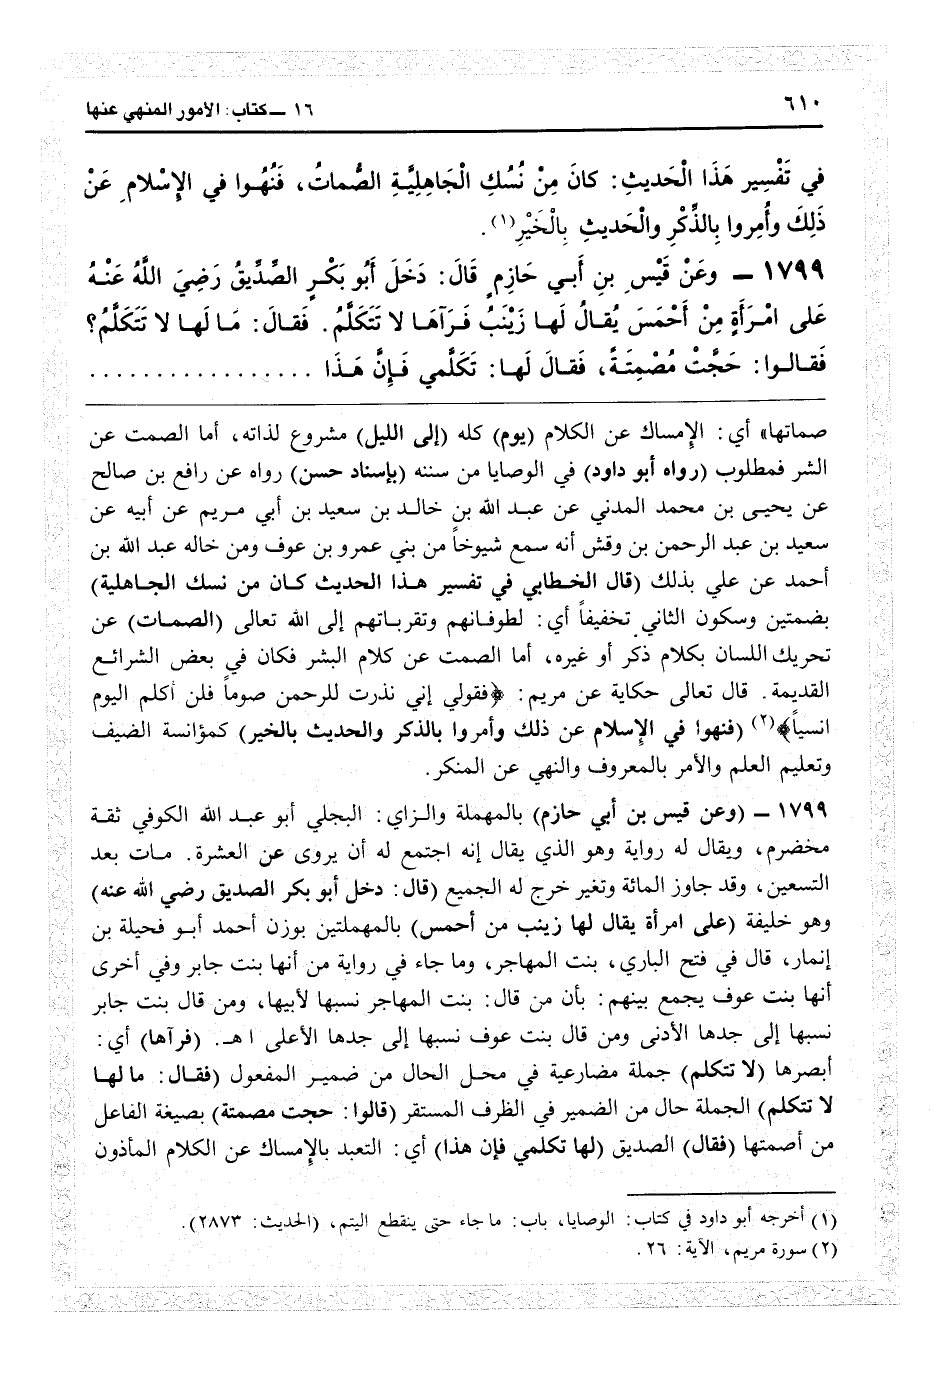 ٦١٠
١٦ ـ كتاب: الأمور المنهي عنها
في تَفْسِيرِ هَذَا الْحَدِيثِ: كانَ مِنْ نُسُكِ الْجَاهِلِيَّةِ الصُّماتُ، فَنُهُوا في الإِسْلامِ عَنْ
ذَلِكَ وأُمِروا بِالذِّكْرِ والْحَديثِ بِالْخَيْرِ(١).
١٧٩٩ ـ وعَنْ قَيْسِ بنِ أَبي حَازِمٍ قَالَ: دَخَلَ أَبُو بَكْرٍ الصِّدِّيقُ رَضِيَ اللَّهُ عَنْهُ
عَلى امْرَأَةٍ مِنْ أَحْمَسَ يُقالُ لَها زَيْنَبُ فَرَآهَا لا تَتَكَلَّمُ. فَقالَ: مَا لَها لا تَتَكَلَّمُ؟
فَقالوا: حَجَّتْ مُصْمِتَةً، فَقالَ لَها: تَكَلَّمي فَإِنَّ هَذَا . . . . . . . . . . . . . . . .
صماتها» أي: الإمساك عن الكلام (يوم) كله (إلى الليل) مشروع لذاته، أما الصمت عن
الشر فمطلوب (رواه أبو داود) في الوصايا من سننه (بإسناد حسن) رواه عن رافع بن صالح
عن يحيى بن محمد المدني عن عبد الله بن خالد بن سعيد بن أبي مريم عن أبيه عن
سعيد بن عبد الرحمن بن وقش أنه سمع شيوخاً من بني عمرو بن عوف ومن خاله عبد الله بن
أحمد عن علي بذلك (قال الخطابي في تفسير هذا الحديث كان من نسك الجاهلية)
بضمتين وسكون الثاني تخفيفاً أي: لطوفانهم وتقرباتهم إلى الله تعالى (الصمات) عن
تحريك اللسان بكلام ذكر أو غيره، أما الصمت عن كلام البشر فكان في بعض الشرائع
القديمة. قال تعالى حكاية عن مريم: ﴿فقولي إني نذرت للرحمن صوماً فلن أكلم اليوم
انسياً﴾(٢) (فنهوا في الإسلام عن ذلك وأمروا بالذكر والحديث بالخير) كمؤانسة الضيف
وتعليم العلم والأمر بالمعروف والنهي عن المنكر.
١٧٩٩ ـ (وعن قيس بن أبي حازم) بالمهملة والزاي: البجلي أبو عبد الله الكوفي ثقة
مخضرم، ويقال له رواية وهو الذي يقال إنه اجتمع له أن يروى عن العشرة. مات بعد
التسعين، وقد جاوز المائة وتغير خرج له الجميع (قال: دخل أبو بكر الصديق رضي الله عنه)
وهو خليفة (على امرأة يقال لها زينب من أحمس) بالمهملتين بوزن أحمد أبو فحيلة بن
إنمار، قال في فتح الباري، بنت المهاجر، وما جاء في رواية من أنها بنت جابر وفي أخرى
أنها بنت عوف يجمع بينهم: بأن من قال: بنت المهاجر نسبها لأبيها، ومن قال بنت جابر
نسبها إلى جدها الأدنى ومن قال بنت عوف نسبها إلى جدها الأعلى اهـ. (فرآها) أي:
أبصرها (لا تتكلم) جملة مضارعية في محل الحال من ضمير المفعول (فقال: ما لها
لا تتكلم) الجملة حال من الضمير في الظرف المستقر (قالوا: حجت مصمتة) بصيغة الفاعل
من أصمتها (فقال) الصديق (لها تكلمي فإن هذا) أي: التعبد بالإمساك عن الكلام المأذون
(١) أخرجه أبو داود في كتاب: الوصايا، باب: ما جاء حتى ينقطع اليتم، (الحديث: ٢٨٧٣).
(٢) سورة مريم، الآية: ٢٦.